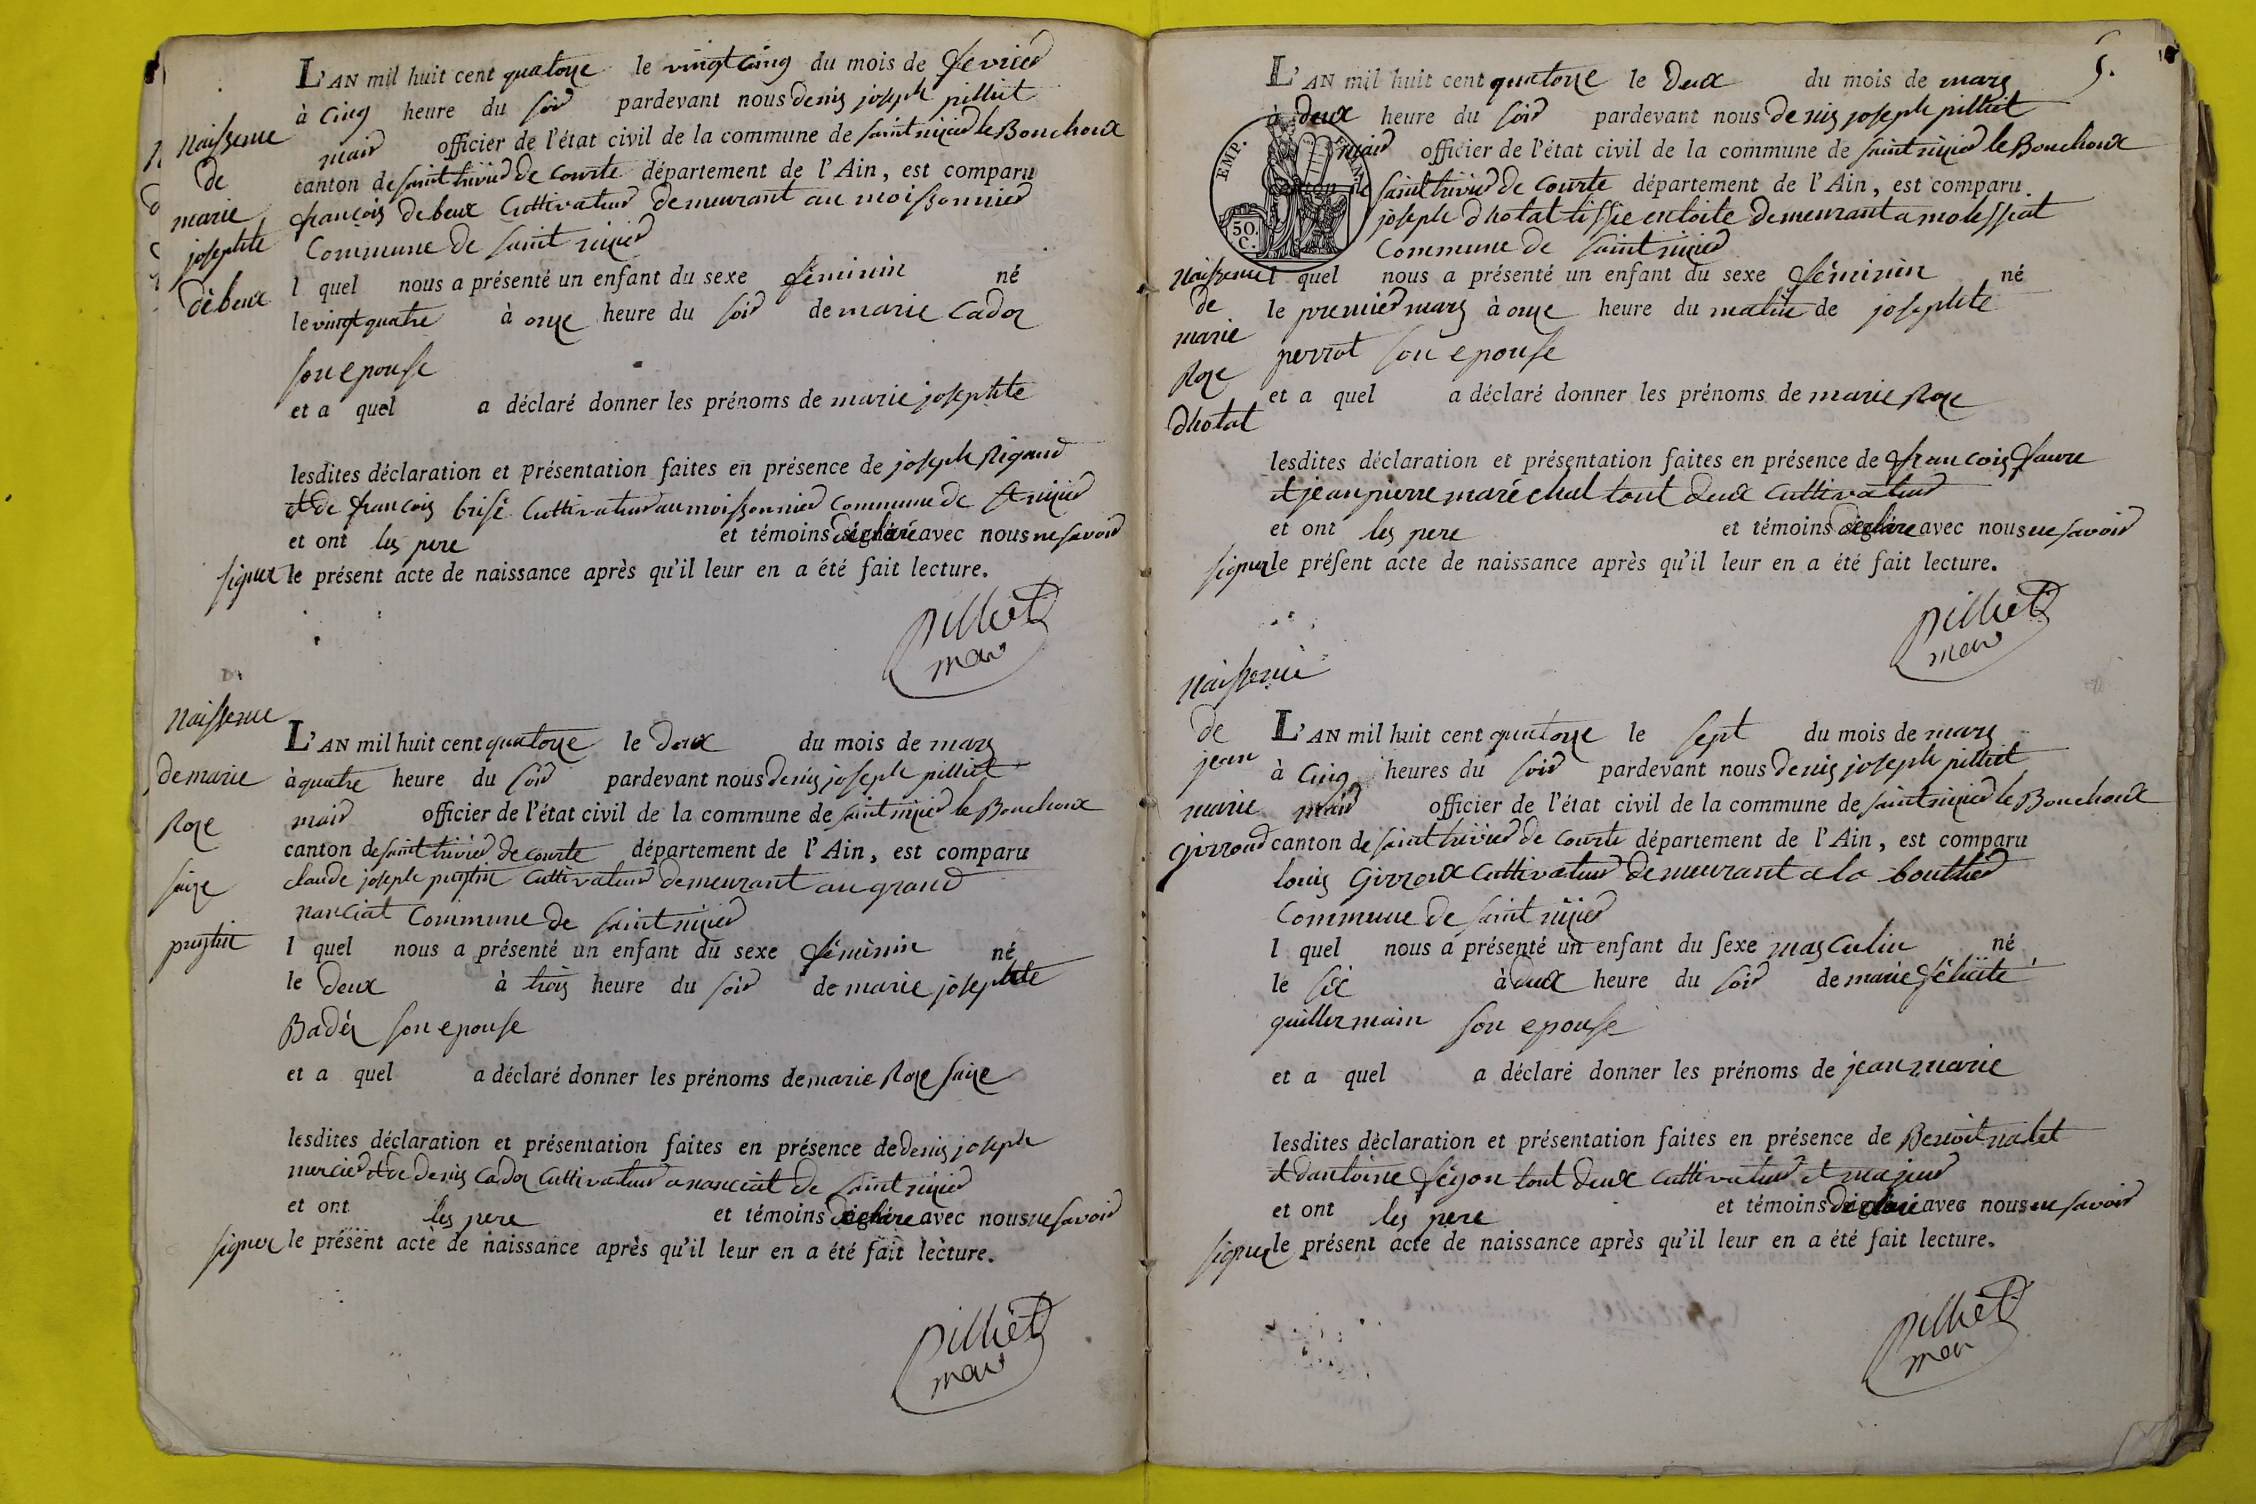 L'AN mil huit cent quatorze le vingt cinq du mois de février
à cinq heure du soir pardevant nous denis joseph pilliet
maire officier de l'état civil de la commune de saint nizier le Bouchoux
canton de saint trivier de Courte département de l'Ain, est comparu
françois debeux Cultivateur demeurant au moissonnier
Commune de saint nizier
l quel nous a présenté un enfant du sexe féminin né
le vingt quatre à onze heure du soir de marie Cadoz
son epouse
et a quel a déclaré donner les prénoms de marie josephte
lesdites déclaration et présentation faites en présence de joseph Rigaud
et de françois brisé Cultivateur au moissonnier Commune de st nizier
et ont les pere et témoins déclaré avec nous ne savoir
signer le présent acte de naissance après qu'il leur en a été fait lecture.
pilliet
maire
Naissence
de
marie
josephte
débeux
Naissence
de marie
Roze
saize
L'AN mil huit cent quatorze le deux du mois de mars
à quatre heure du soir pardevant nous denis joseph pilliet
maire officier de l'état civil de la commune de saint nizier le Bouchoux
canton de saint trivier de courte département de l'Ain, est comparu
claude joseph Cultivateur demeurant au grand
nanciat Commune de saint nizier
l quel nous a présenté un enfant du sexe féminin né
le deux à trois heure du soir de marie josephte
Badéz son epouse
et a quel a déclaré donner les prénoms de marie Roze saize
lesdites déclaration et présentation faites en présence de denis joseph
mercier et de denis Cadoz Cultivateur a nanciat de saint nizier
et ont les pere et témoins déclaré avec nous ne savoir
signer le présent acte de naissance après qu'il leur en a été fait lecture.
pilliet
maire
5.
L'AN mil huit cent quatorze le deux du mois de mars
à deux heure du soir pardevant nous denis joseph pilliet
maire officier de l'état civil de la commune de saint nizier le Bouchoux
canton de saint trivier de Courte département de l'Ain, est comparu
joseph dhotal tissie en toile demeurant a molessiat
Commune de saint nizier
EMP. FRAN.
50.
C.
l quel nous a présenté un enfant du sexe féminin né
le premier mars à onze heure du matin de josephte
perrot son epouse
et a quel a déclaré donner les prénoms de marie Roze
lesdites déclaration et présentation faites en présence de françois faure
et jean pierre maréchal tout deux Cultivateur
et ont les pere et témoins déclare avec nous ne savoir
signer le présent acte de naissance après qu'il leur en a été fait lecture.
pilliet
maire
Naissence
de
marie
Roze
dhotal
Naissence
de
jean
marie
girroud
L'AN mil huit cent quatorze le sept du mois de mars
à Cinq heures du soir pardevant nous denis joseph pilliet
maire officier de l'état civil de la commune de saint nizier le Bouchoux
canton de saint trivier de Courte département de l'Ain, est comparu
louis Girroux Cultivateur demeurant a la bouttier
Commune de saint nizier
l quel nous a présenté un enfant du sexe masculin né
le six à deux heure du soir de marie félicité
guillermain son epouse
et a quel a déclaré donner les prénoms de jean marie
lesdites déclaration et présentation faites en présence de Benoit nalet
et dantoine féyon tout deux Cultivateur et majeur
et ont les pere et témoins déclaré avec nous ne savoir
signer le présent acte de naissance après qu'il leur en a été fait lecture.
pilliet
maire